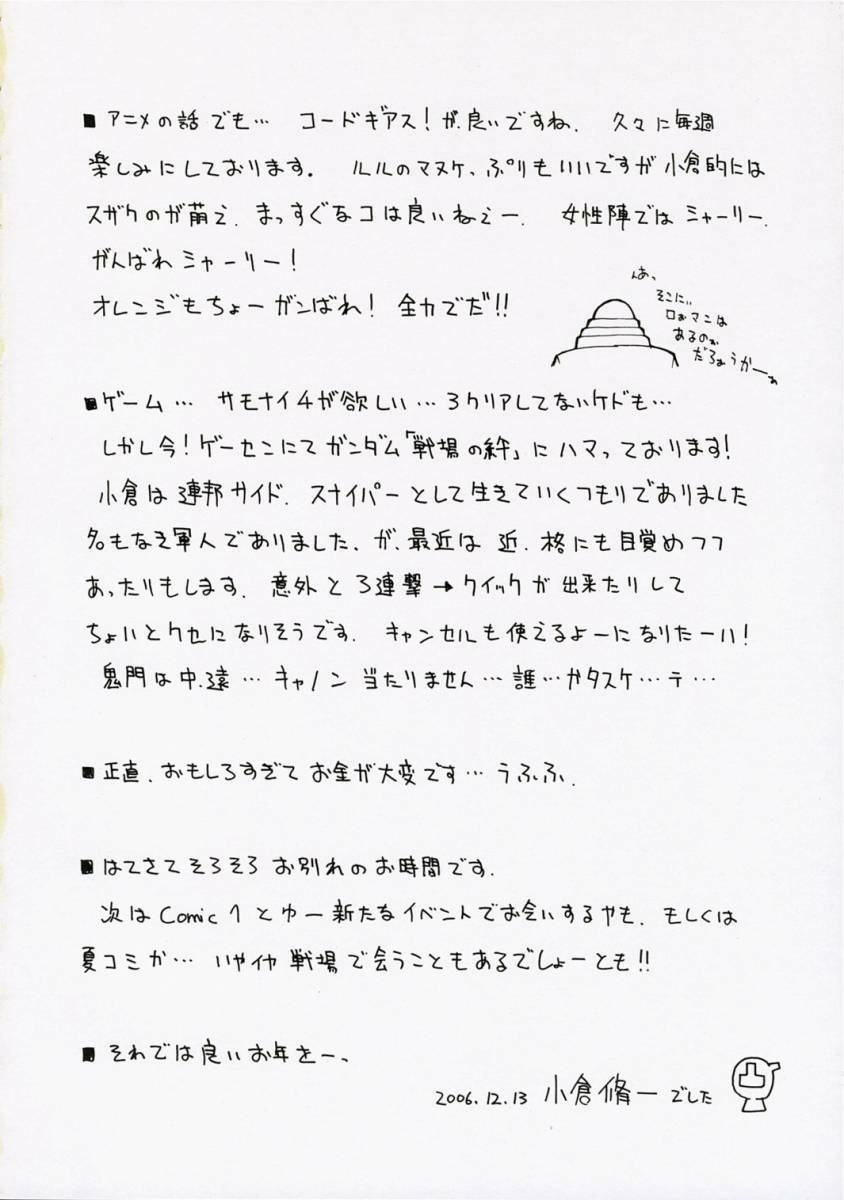 ■ アニメの話でも… コードギアス!が、良いですね、久々に毎週
楽しみにしております。 ルルのマヌケっぷりもいいですが小倉的には
スザクのが萌え、まっすぐなコは良いねぇー、 女性陣ではシャーリー、
がんばれシャーリー!
オレンジもちょーガンばれ! 全力でだ!!
んあ、
そこにぃ
ロぉマンは
あるのぉ
だろぉうかーぁ
■ ゲーム… サモナイ4が欲しい…3クリアしてないケドも…
しかし今!ゲーセンにてガンダム「戦場の絆」にハマっております!
小倉は連邦サイド、スナイパーとして生きていくつもりでありました
名もなき軍人でありました、が、最近は 近、格にも目覚めつつ
あったりもします、意外と3連撃→クイックが出来たりして
ちょいとクセになりそうです、 キャンセルも使えるよーになりたーい!
鬼門は中、遠…キャノン当たりません…誰…かタスケ…テ…
■ 正直、おもしろすぎてお金が大変です…うふふ、
■ はてさてそろそろお別れのお時間です、
次はComic1とゆー新たなイベントでお会いするやも、もしくは
夏コミか… いやイヤ戦場で会うこともあるでしょーとも!!
■ それでは良いお年をー、
2006.12.13 小倉脩一でした